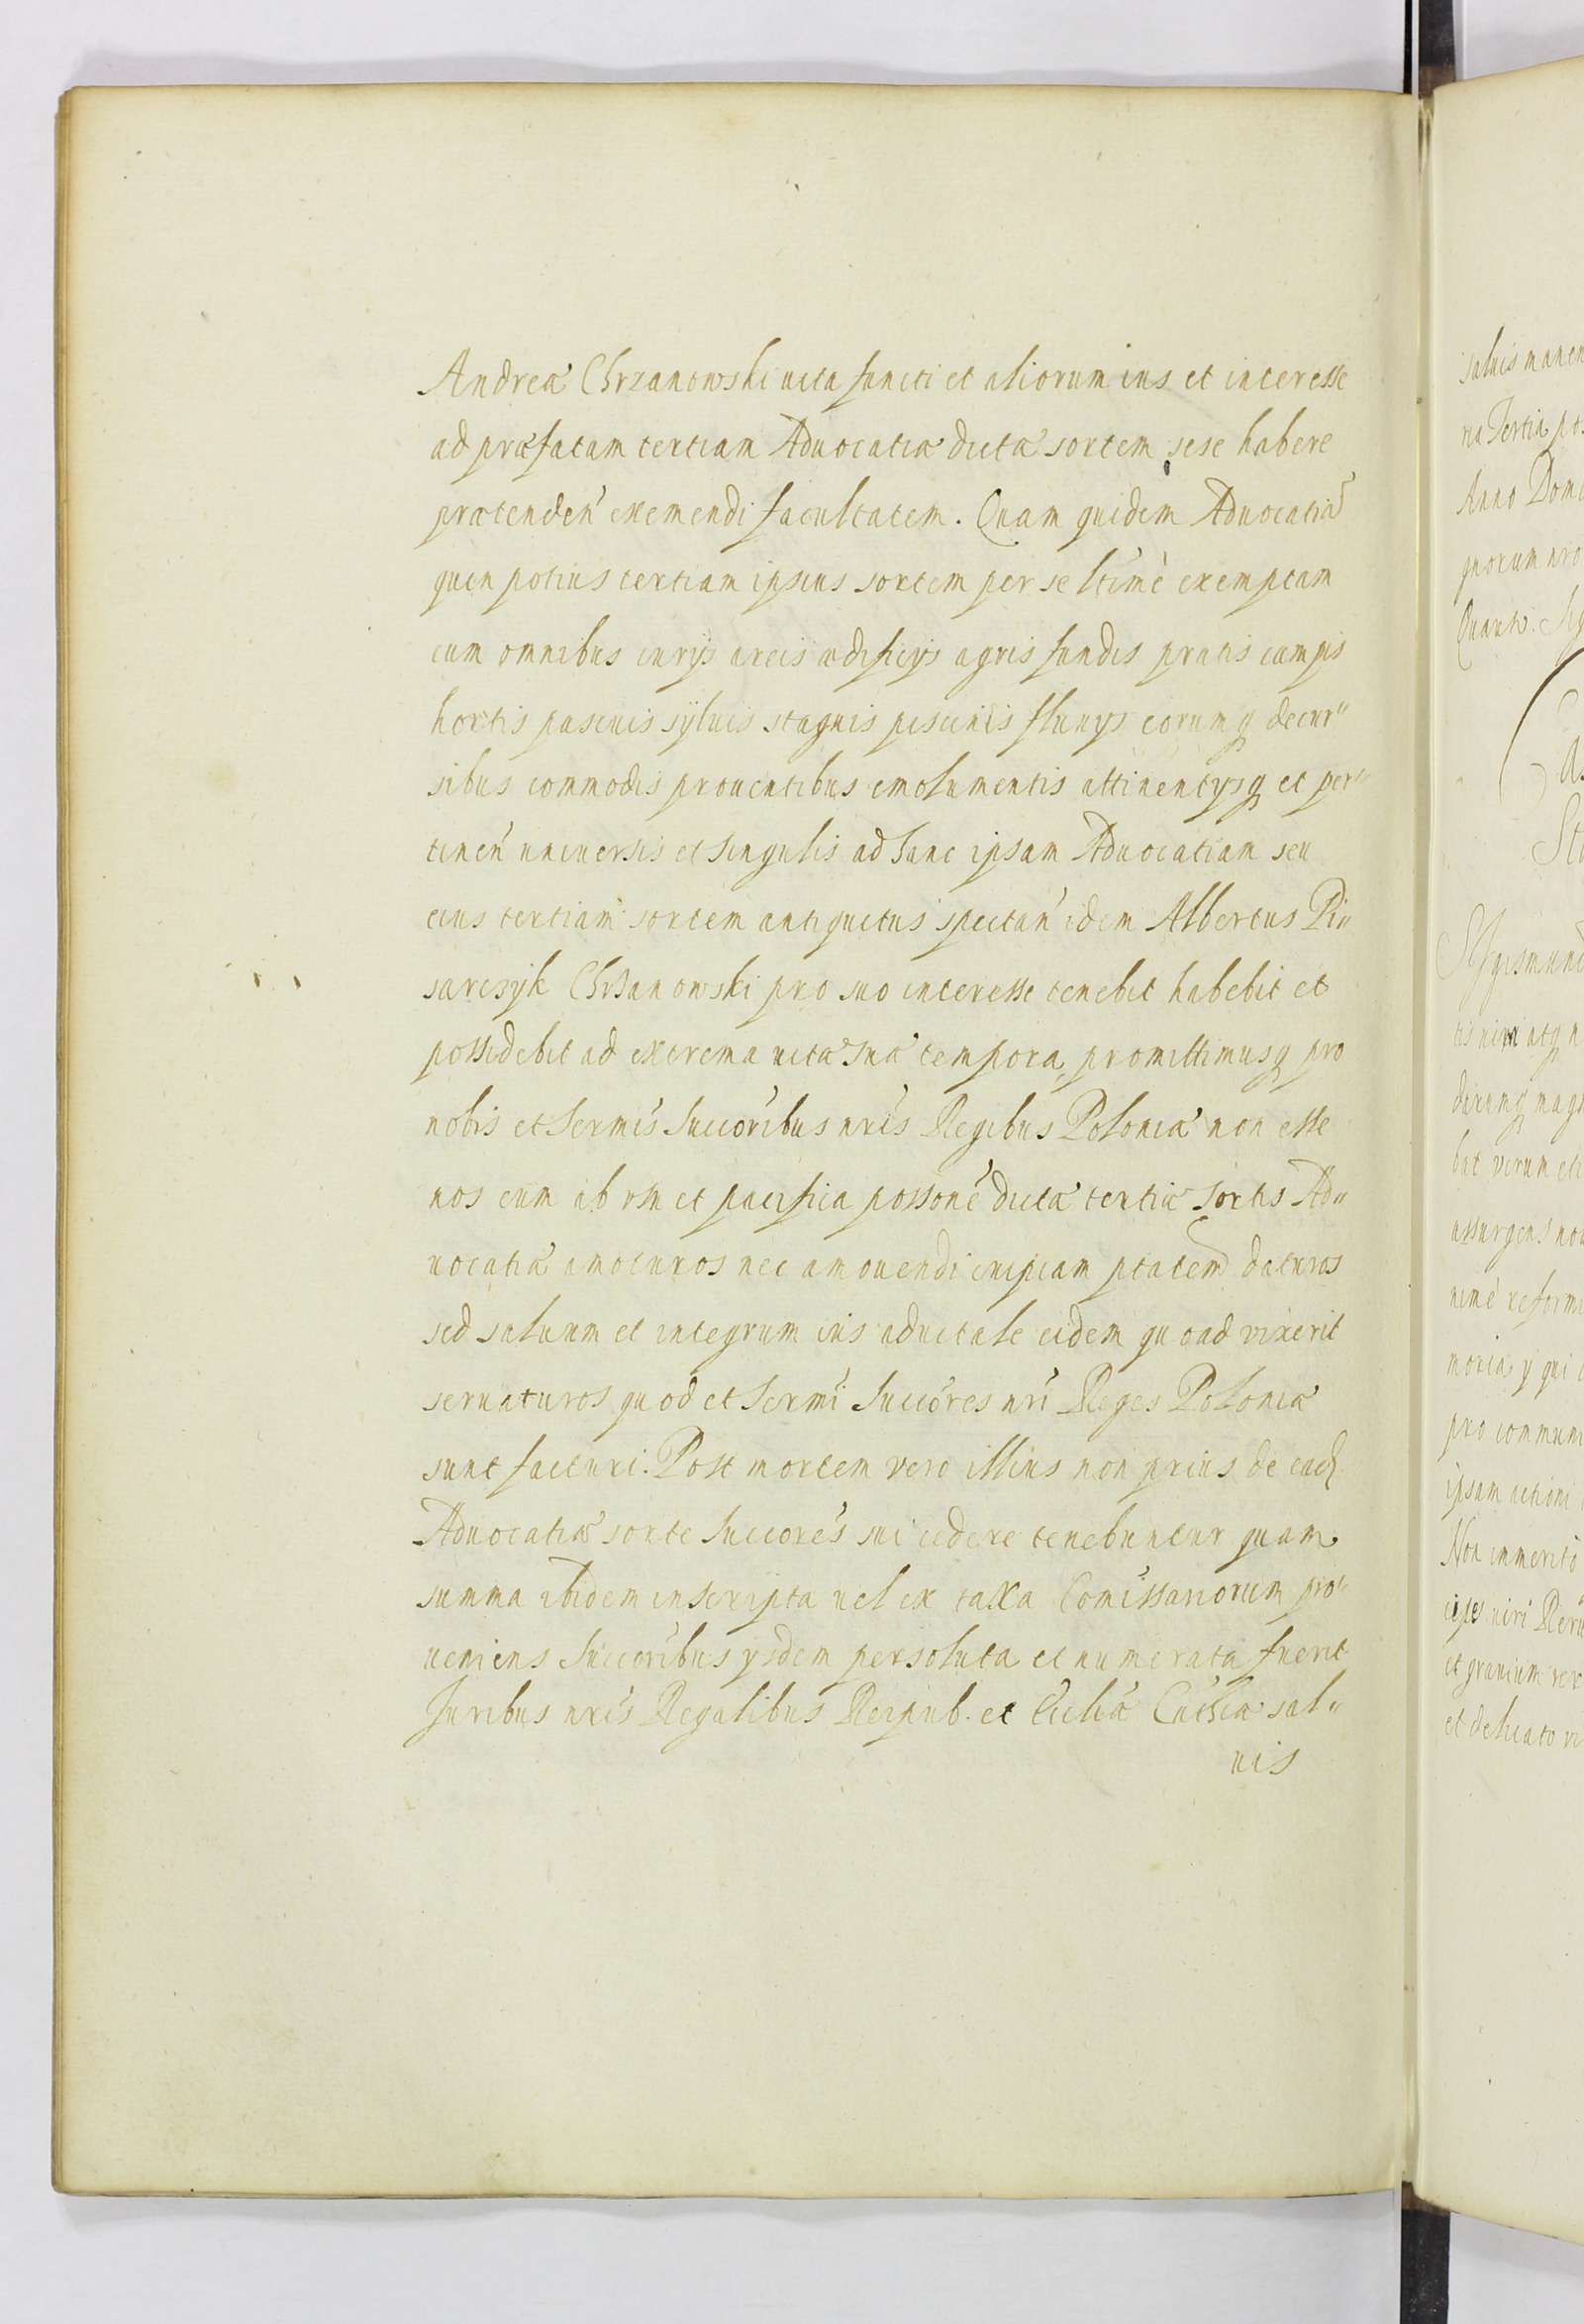 Andreæ Chrzanowski uita functi et aliorum ius et interesse
ad præfatam tertiam Aduocatiæ dictæ sortem sese habere
prætenden̄ exemendi facultatem. Quam quidem Aduocatiā
quin potius tertiam ipsius sortem per se ltimè exemptam
cum omnibus iurijs areis ædificijs agris fundis pratis campis
hortis pascuis syluis stagnis piscinis fluuijs eorumq decur„
sibus commodis prouentibus emolumentis attinentijsq et per„
tinen̄ uniuersis et singulis ad hanc ipsam Aduocatiam seu
eius tertiam sortem antiquitus spectan̄ idem Albertus Pi„
sarczyk Chrzanowski pro suo interesse tenebit habebit et
possidebit ad extrema uitæ suæ tempora, promittimusq pro
nobis et Sermis Succoribus nris Regibus Poloniæ non esse
nos eum ab vsu et pacifica possone dictæ tertiæ Sortis Ad„
uocatiæ amoturos nec amouendi cuipiam ptatem daturos
sed saluum et integrum ius aduitale eidem quoad vixerit
seruaturos quod et Sermi Succores nri Reges Poloniæ
sunt facturi. Post mortem vero illius non prius de ead
Aduocatiæ sorte Succores sui cedere tenebuntur quam
summa ibidem inscripta uel ex taxa Comissariorum pro„
ueniens Succoribus ijsdem persoluta et numerata fuerit
Juribus nris Regalibus Reipub. et Ecclīæ Cathcæ sal„
uis
saluis manen
ria Tertia
Anno Domi
quorum nro
Quarto. Sig
Sigismund